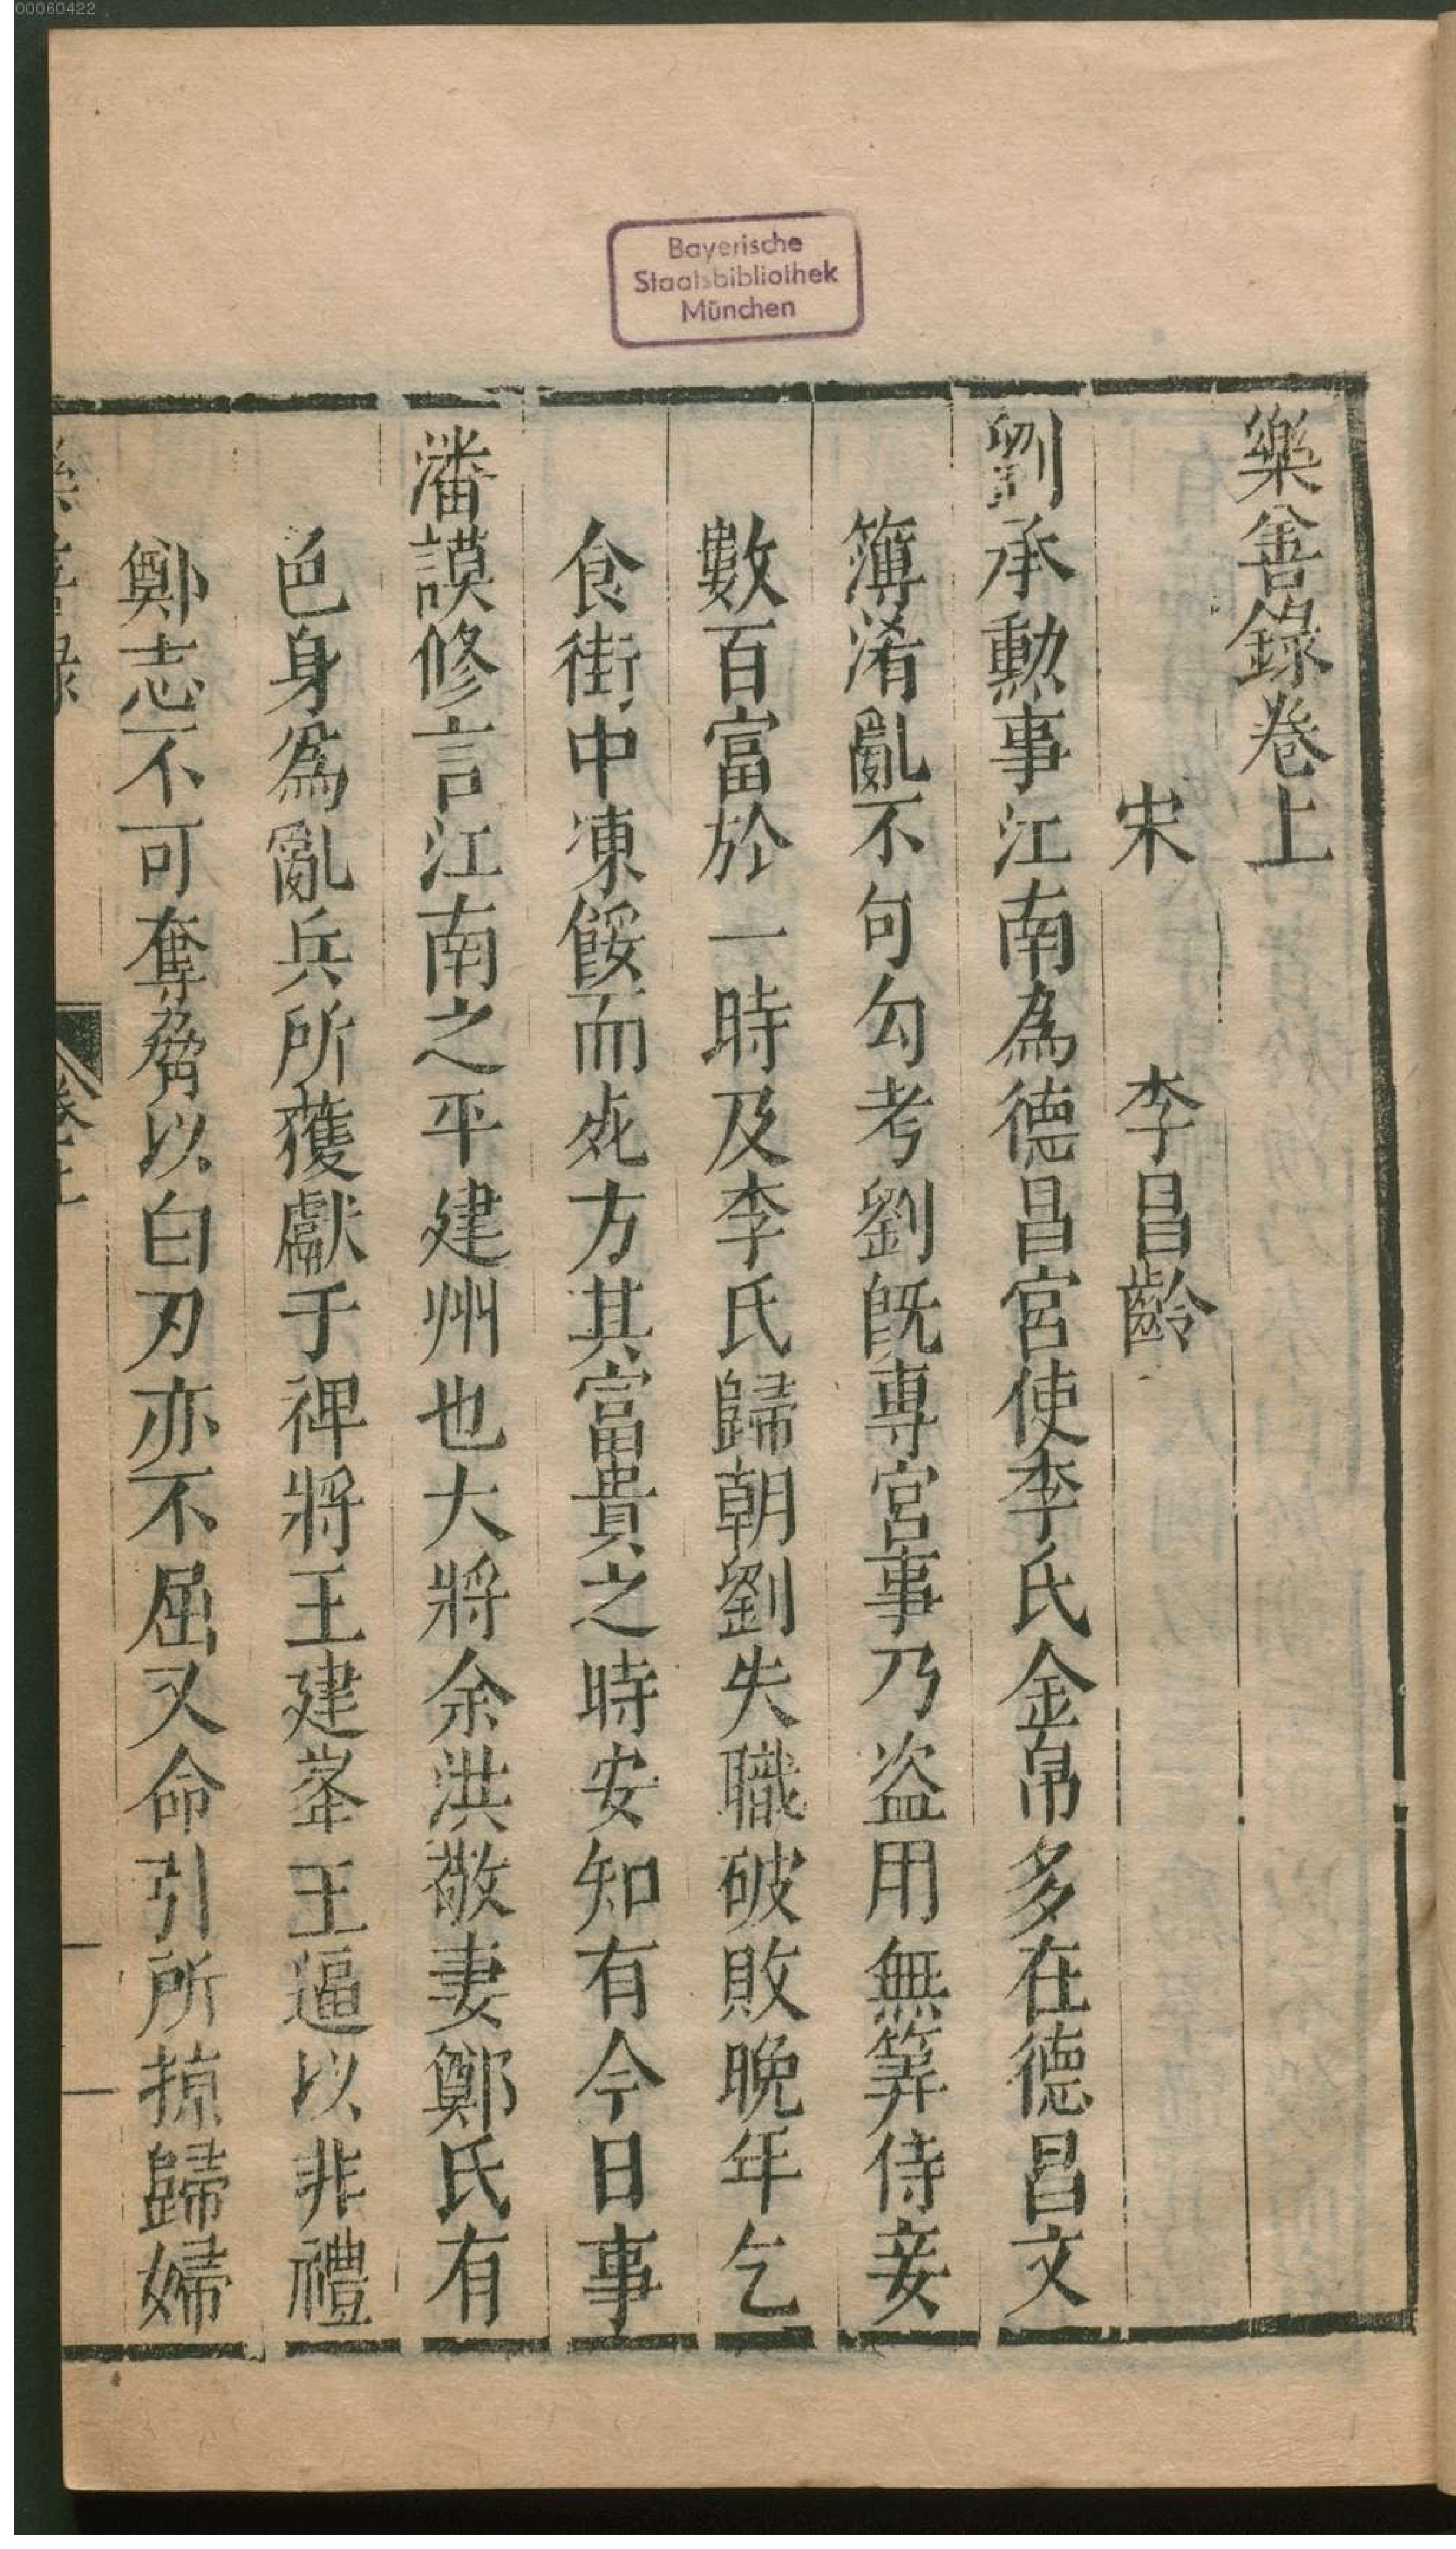 00060422
Bayerische
Staatsbibliothek
München
樂善錄卷上
宋 李昌齡
劉承勳事江南為德昌宮使李氏金帛多在德昌文
簿淆亂不句勾考劉旣專宮事乃盗用無筭侍妾
數百富於一時及李氏歸朝劉失職破敗晚年乞
食街中凍餒而死方其富貴之時安知有今日事
潘謨修言江南之平建州也大將余洪敬妻鄭氏有
色身爲亂兵所獲獻于裨將王建峯王逼以非禮
鄭志不可奪脅以白刃亦不屈又命引所掠歸婦
樂善錄 卷上 一